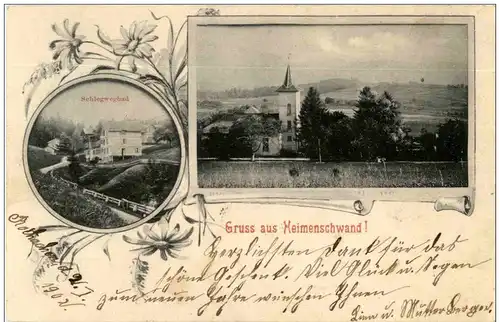 Schlegwegbad
Gruss aus Heimenschwand!
Herzlichsten Dank für das
schöne Geschenk. Viel Glück u. Segen
zum neuen Jahre wünschen Ihnen
Lina u. Mutter Berger.
1902.